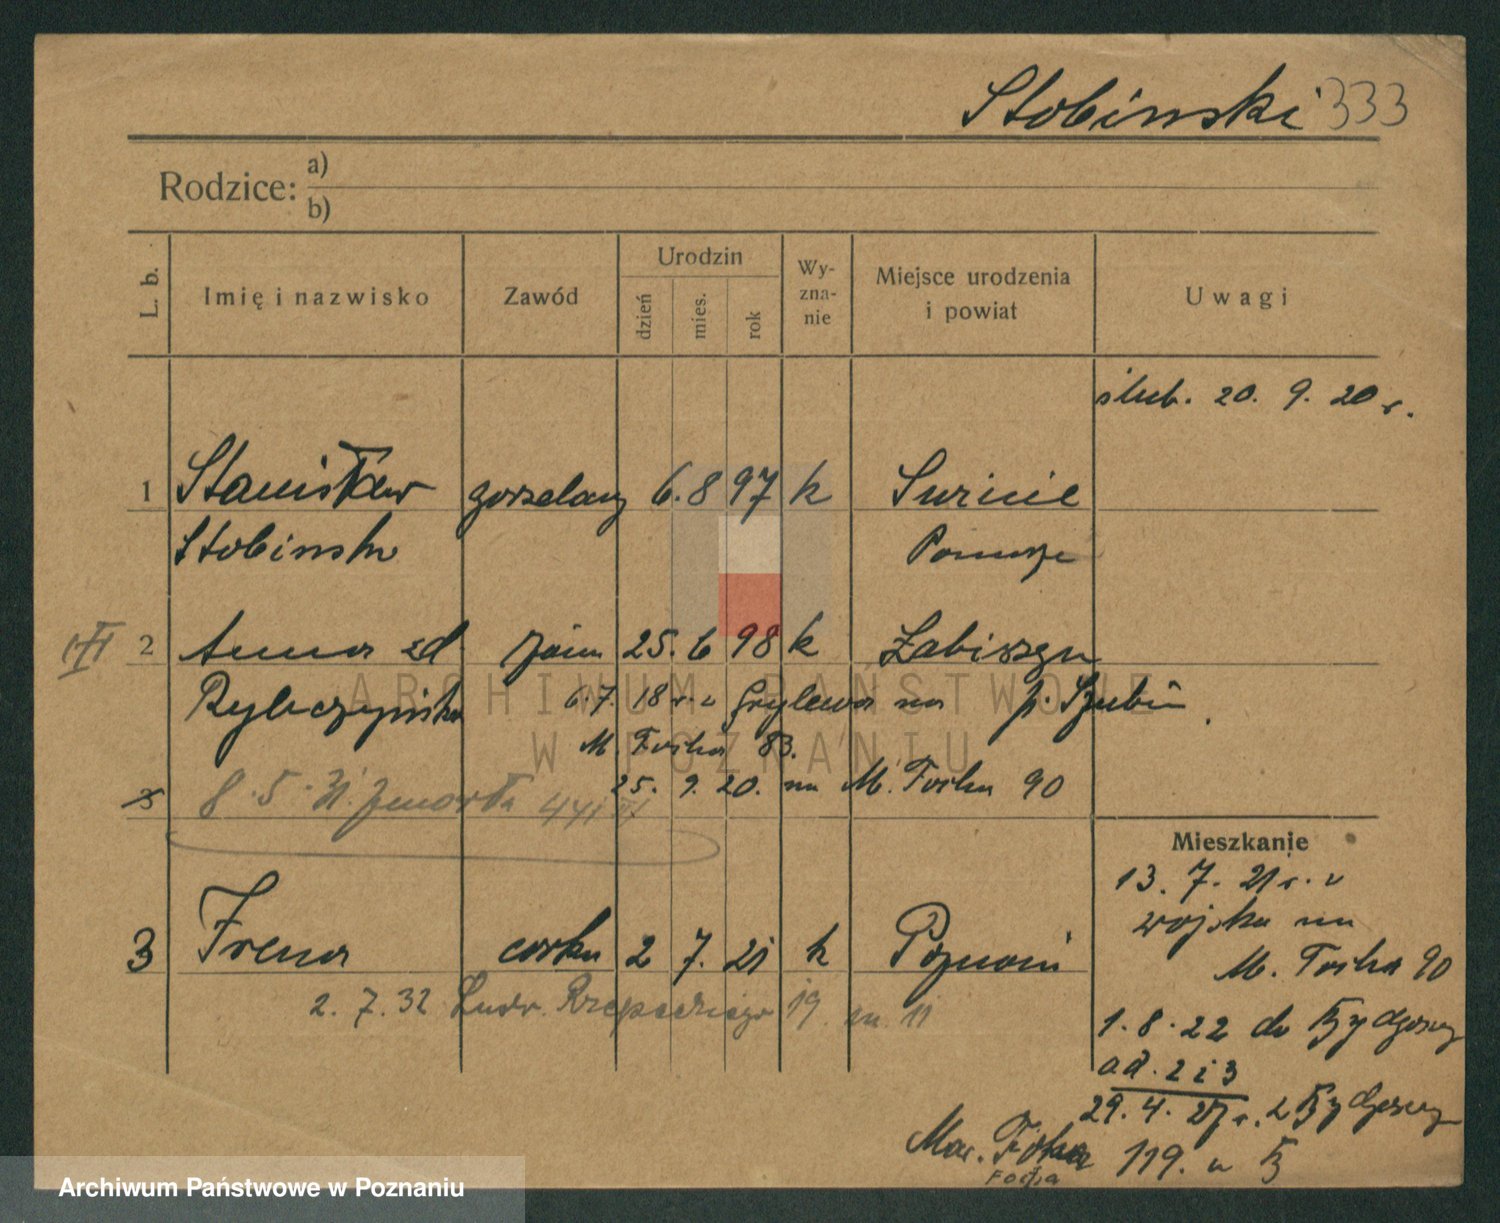 Stobinski 333
Rodzice: a)
b)
L. b.
Imię i nazwisko
Zawód
Urodzin
dzień
mies.
rok
Wy-
zna-
nie
Miejsce urodzenia
i powiat
Uwagi
ślub. 20. 9. 20 r.
1 Stanisław gorzelany 6. 8 97 k
Stobinski Pomorze
2 Anna zd 25. 6 98 k Łabiszyn
Rybczyńska 6. 7. 18 r. z na p. Szubin
M. Focha 83.
25. 9. 20. na M. Focha 90
8. 5.
ARCHIWUM PAŃSTWOWE
W POZNANIU
Mieszkanie
13. 7. 21 r. z
wojska na
M. Focha 90
3 Irena corka 2 7. 21 k Poznań
2. 7. 32 Rzepeckiego 19 m. 11
1. 8. 22 do Bydgoszcz
ad. 2 i 3
29. 4. 27 r. z Bydgoszcz
Mar. Focha 119. u B
Focha
Archiwum Państwowe w Poznaniu